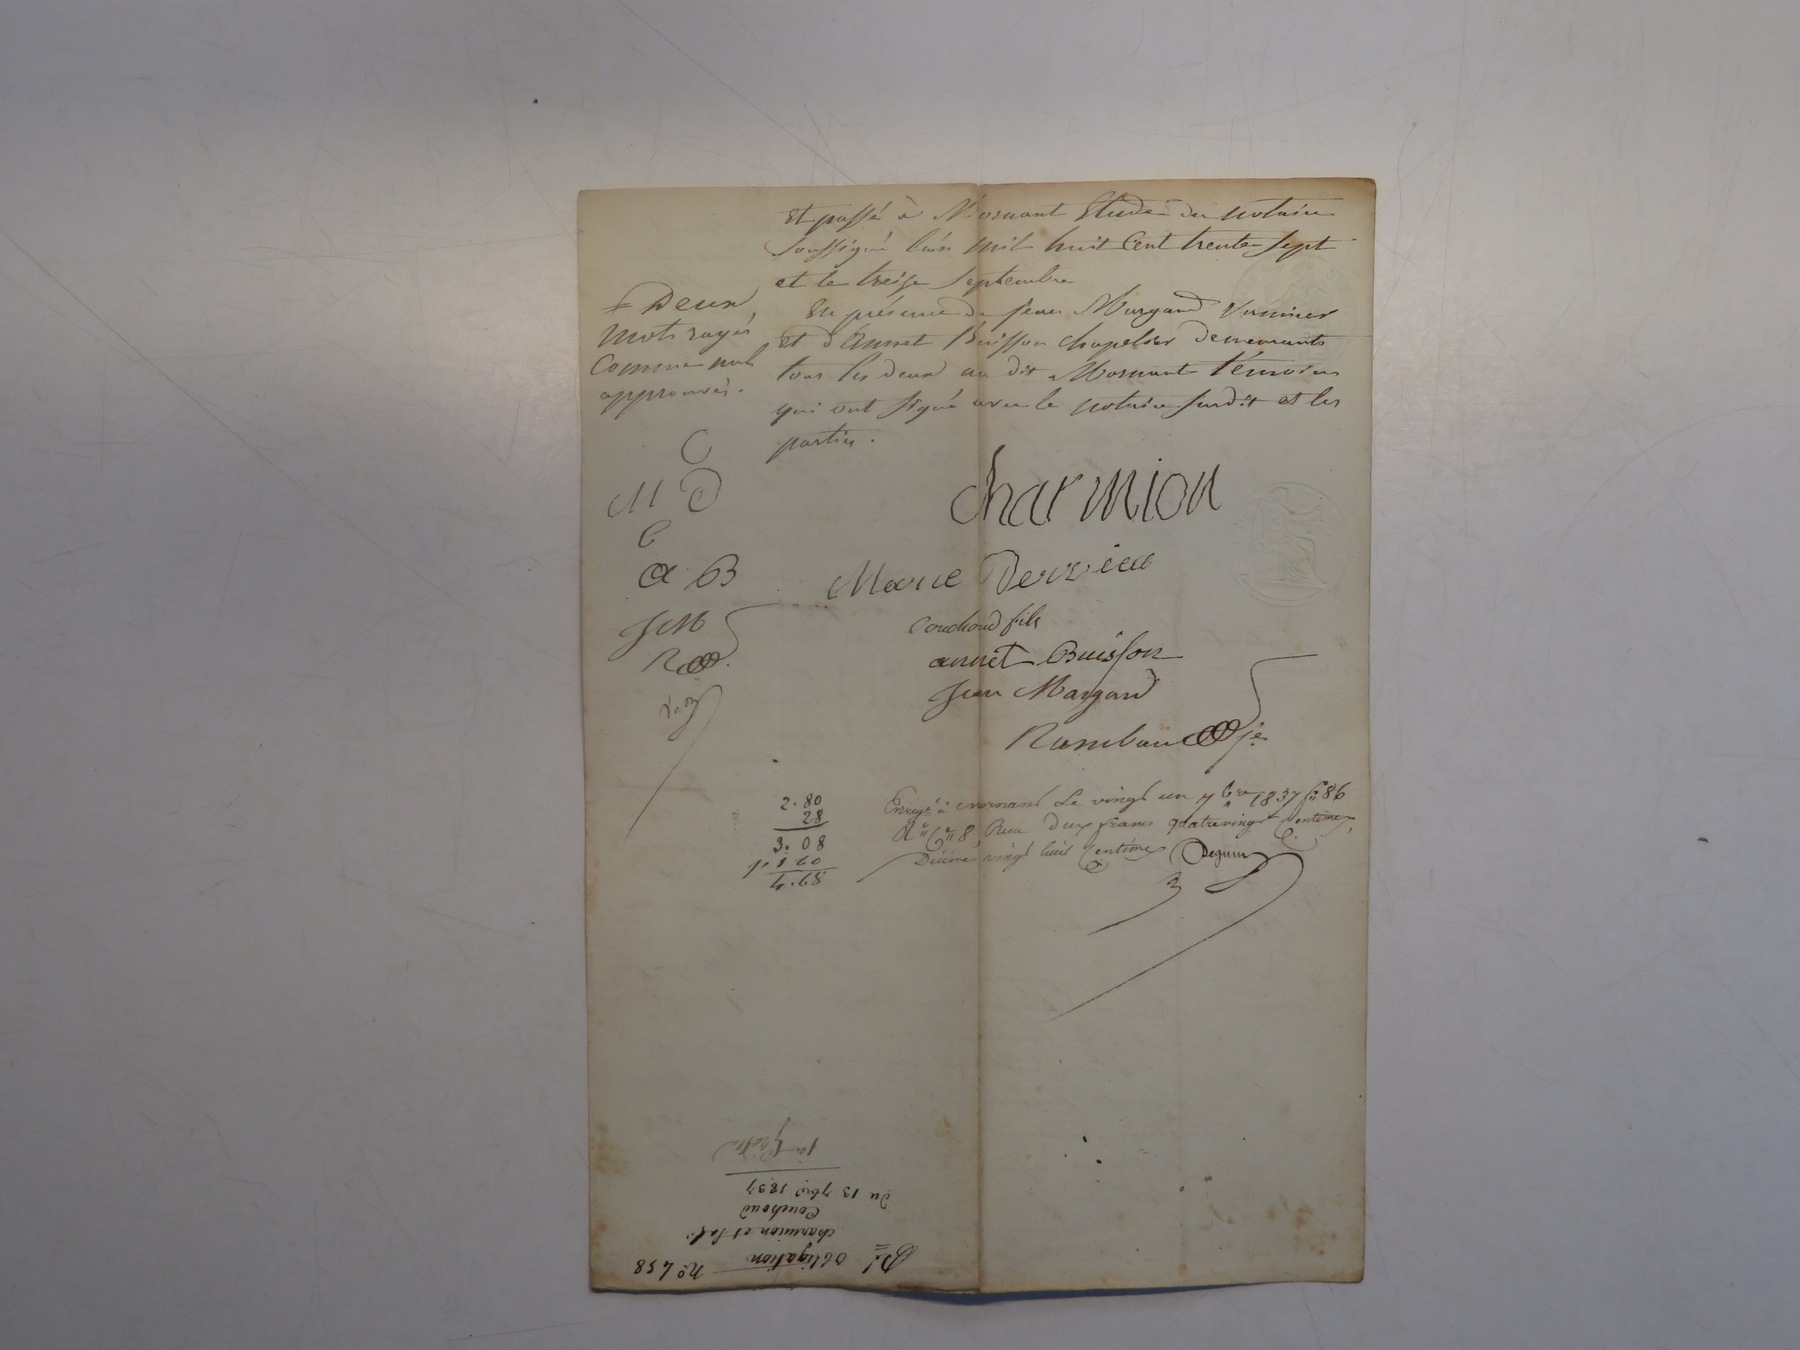 et passé à Mornant Etude du notaire
soussigné l'an mil huit Cent trente sept
et le treize septembre
En présence de Jean Margand
et d'Annet Buisson chapelier demeurants
tous les deux au dit Mornant témoins
qui ont signé avec le notaire susdit et les
parties.
Deux
mots rayés
Comme nul
approuvés.
C
M D
C
A B
J M
R
charmion
Marie Dervieux
Couchoud fils
annet Buisson
Jean Margand
Rambau
2.80
28
3.08
1.60
4.68
Enregé à mornant Le vingt un 7bre 1837 fo 86
Ro Ce 8 Reçu deux francs quatrevingt Centimes
Décime vingt huit Centimes
no 458
Obligation
charmion et
Couchoud
du 13 7bre 1837